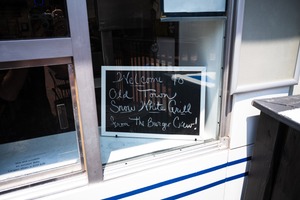 Welcome to
Old Town
Snow White Grill
from The Burger Crew!